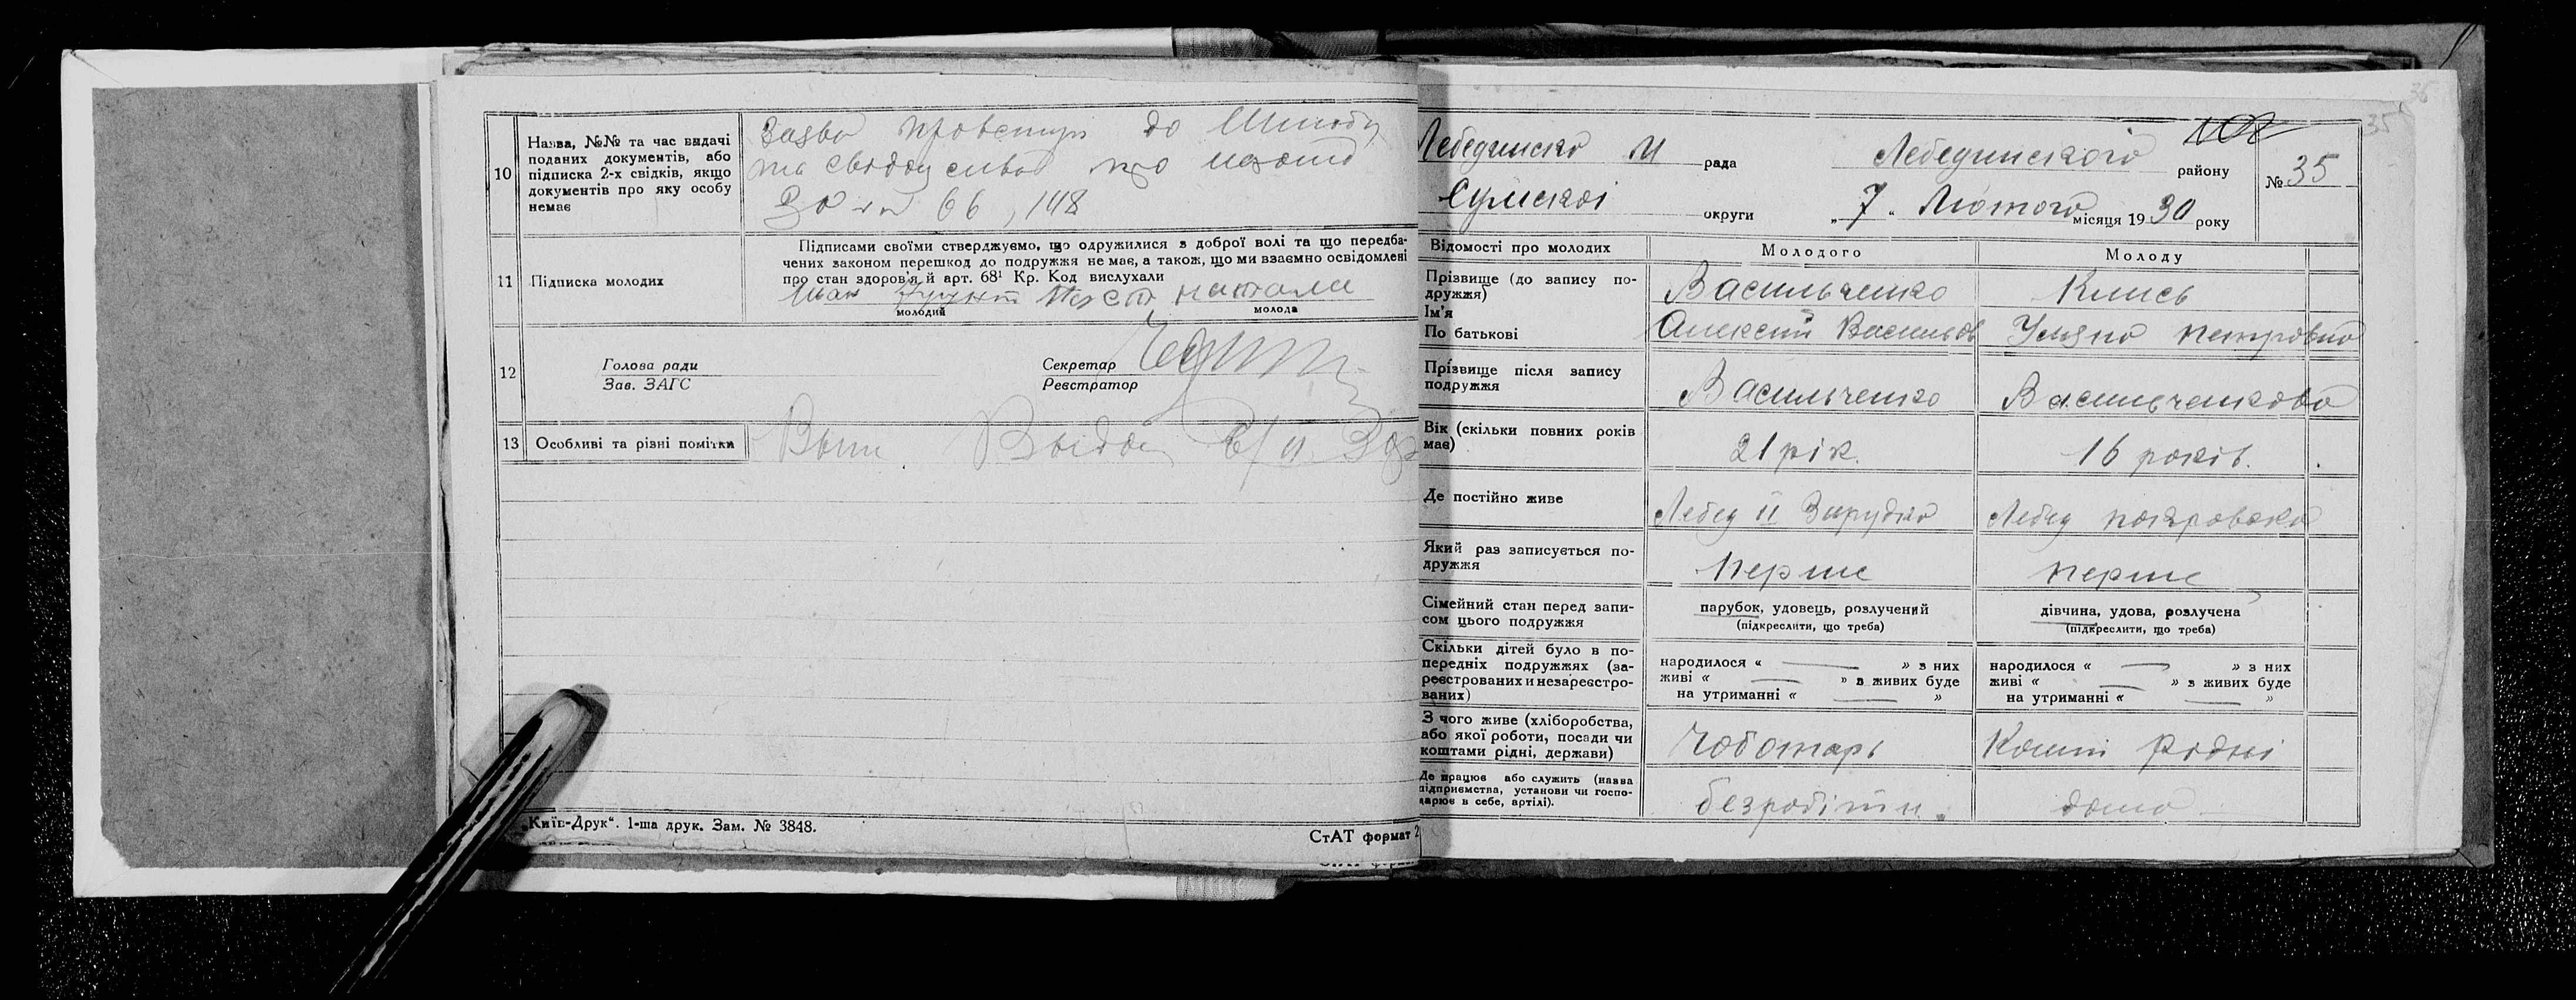 10
Назва, №№ та час видачі
поданих документів, або
підписка 2-х свідків, якщо
документів про яку особу
немає
Заява
до
та
про
66, 148
11
Підписка молодих
Підписами своїми стверджуємо, що одружилися з доброї волі та що передба-
чених законом перешкод до подружжя не має, а також, що ми взаємно освідомлені
про стан здоров'я й арт. 68¹ Кр. Код вислухали
Іван
молодий
молода
12
Голова ради
Зав. ЗАГС
Секретар
Реєстратор
13
Особливі та різні помітки
„Київ-Друк“. 1-ша друк. Зам. № 3848.
СтАТ формат 2
35
Лебединско М рада
Лебединского району
№ 35
Сумскоі округи
„ 7 „ Лютого місяця 1930 року
Відомості про молодих
Молодого
Молоду
Прізвище (до запису по-
дружжя)
Васильченко
Клись
Ім'я
По батькові
Алексей Васильов
Уляна Петровна
Прізвище після запису
подружжя
Васильченко
Васильченкова
Вік (скільки повних років
має)
21 рік.
16 років.
Де постійно живе
Лебед II Зарудка
Лебед
Який раз записується по-
дружжя
перше
перше
Сімейний стан перед запи-
сом цього подружжя
парубок, удовець, розлучений
(підкреслити, що треба)
дівчина, удова, розлучена
(підкреслити, що треба)
Скільки дітей було в по-
передніх подружжях (за-
реєстрованих и незареєстро-
ваних)
народилося « — » з них
живі « — » з живих буде
на утриманні « — »
народилося « — » з них
живі « — » з живих буде
на утриманні « — »
З чого живе (хліборобства,
або якої роботи, посади чи
коштами рідні, держави)
Чоботарь
Кошти Рідні
Де працює або служить (назва
підприємства, установи чи госпо-
дарює в себе, артілі).
безробітн.
дома